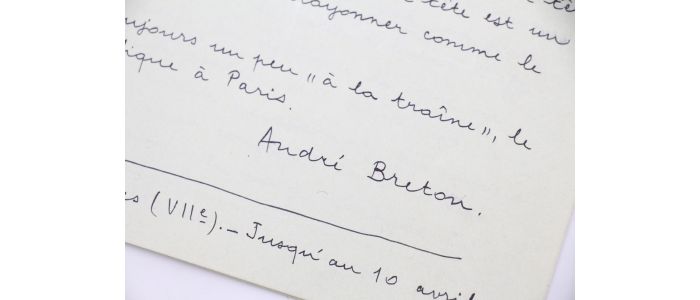 tête est un
rayonner comme le
toujours un peu " à la traîne ", le
à Paris.
André Breton.
(VIIe). — Jusqu'au 10 avril